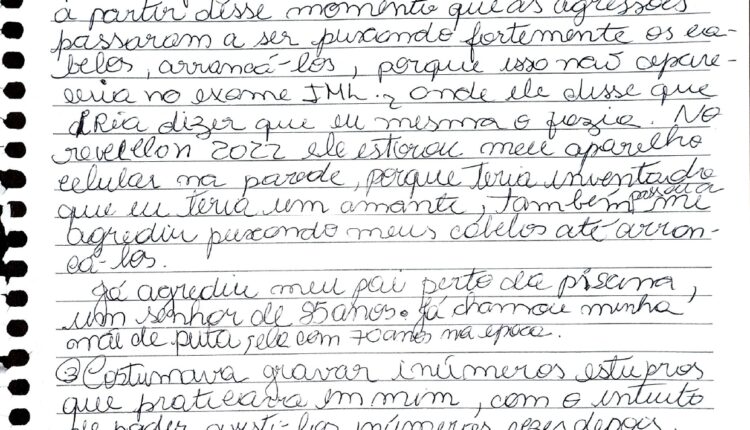 a partir desse momento que as agressões
passaram a ser puxando fortemente os ca-
belos, arrancá-los, porque isso não apare-
ceria no exame IML., onde ele disse que
iRia dizer que eu mesma o fazia. No
reveillon 2022 ele estorou meu aparelho
celular na parede, porque teria inventado
que eu teria um amante, também passou a me
agrediu puxando meus cabelos até arran-
cá-los.
Já agrediu meu pai perto da piscina,
um senhor de 85 anos. Já chamou minha
mãe de puta, ela com 70 anos na época.
③ Costumava gravar inúmeros estupros
que praticava em mim, com o intuito
de poder assisti-los inúmeras vezes depois.